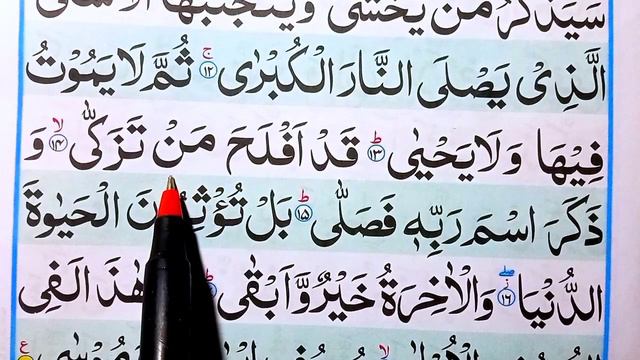 سَيَذَّكَّرُ مَنْ يَّخْشٰى وَيَتَجَنَّبُهَا الْاَشْقَى
الَّذِىْ يَصْلَى النَّارَ الْكُبْرٰى ۚ ﴿۱۲﴾ ثُمَّ لَا يَمُوْتُ
فِيْهَا وَلَا يَحْيٰى ؕ ﴿۱۳﴾ قَدْ اَفْلَحَ مَنْ تَزَكّٰى ۙ ﴿۱۴﴾ وَ
ذَكَرَ اسْمَ رَبِّهٖ فَصَلّٰى ؕ ﴿۱۵﴾ بَلْ تُؤْثِرُوْنَ الْحَيٰوةَ
الدُّنْيَا ﴿۱۶﴾ وَالْاٰخِرَةُ خَيْرٌ وَّاَبْقٰى هٰذَا لَفِى